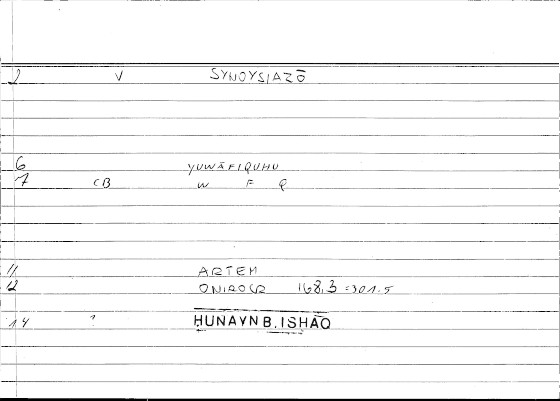 2 V SYNOYSIAZŌ
6 YUWĀFIQUHU
7 CB W F Q
11 ARTEM
12 ONIROCR 168,3 = 301.5
14 ? HUNAYN B. ISHĀQ